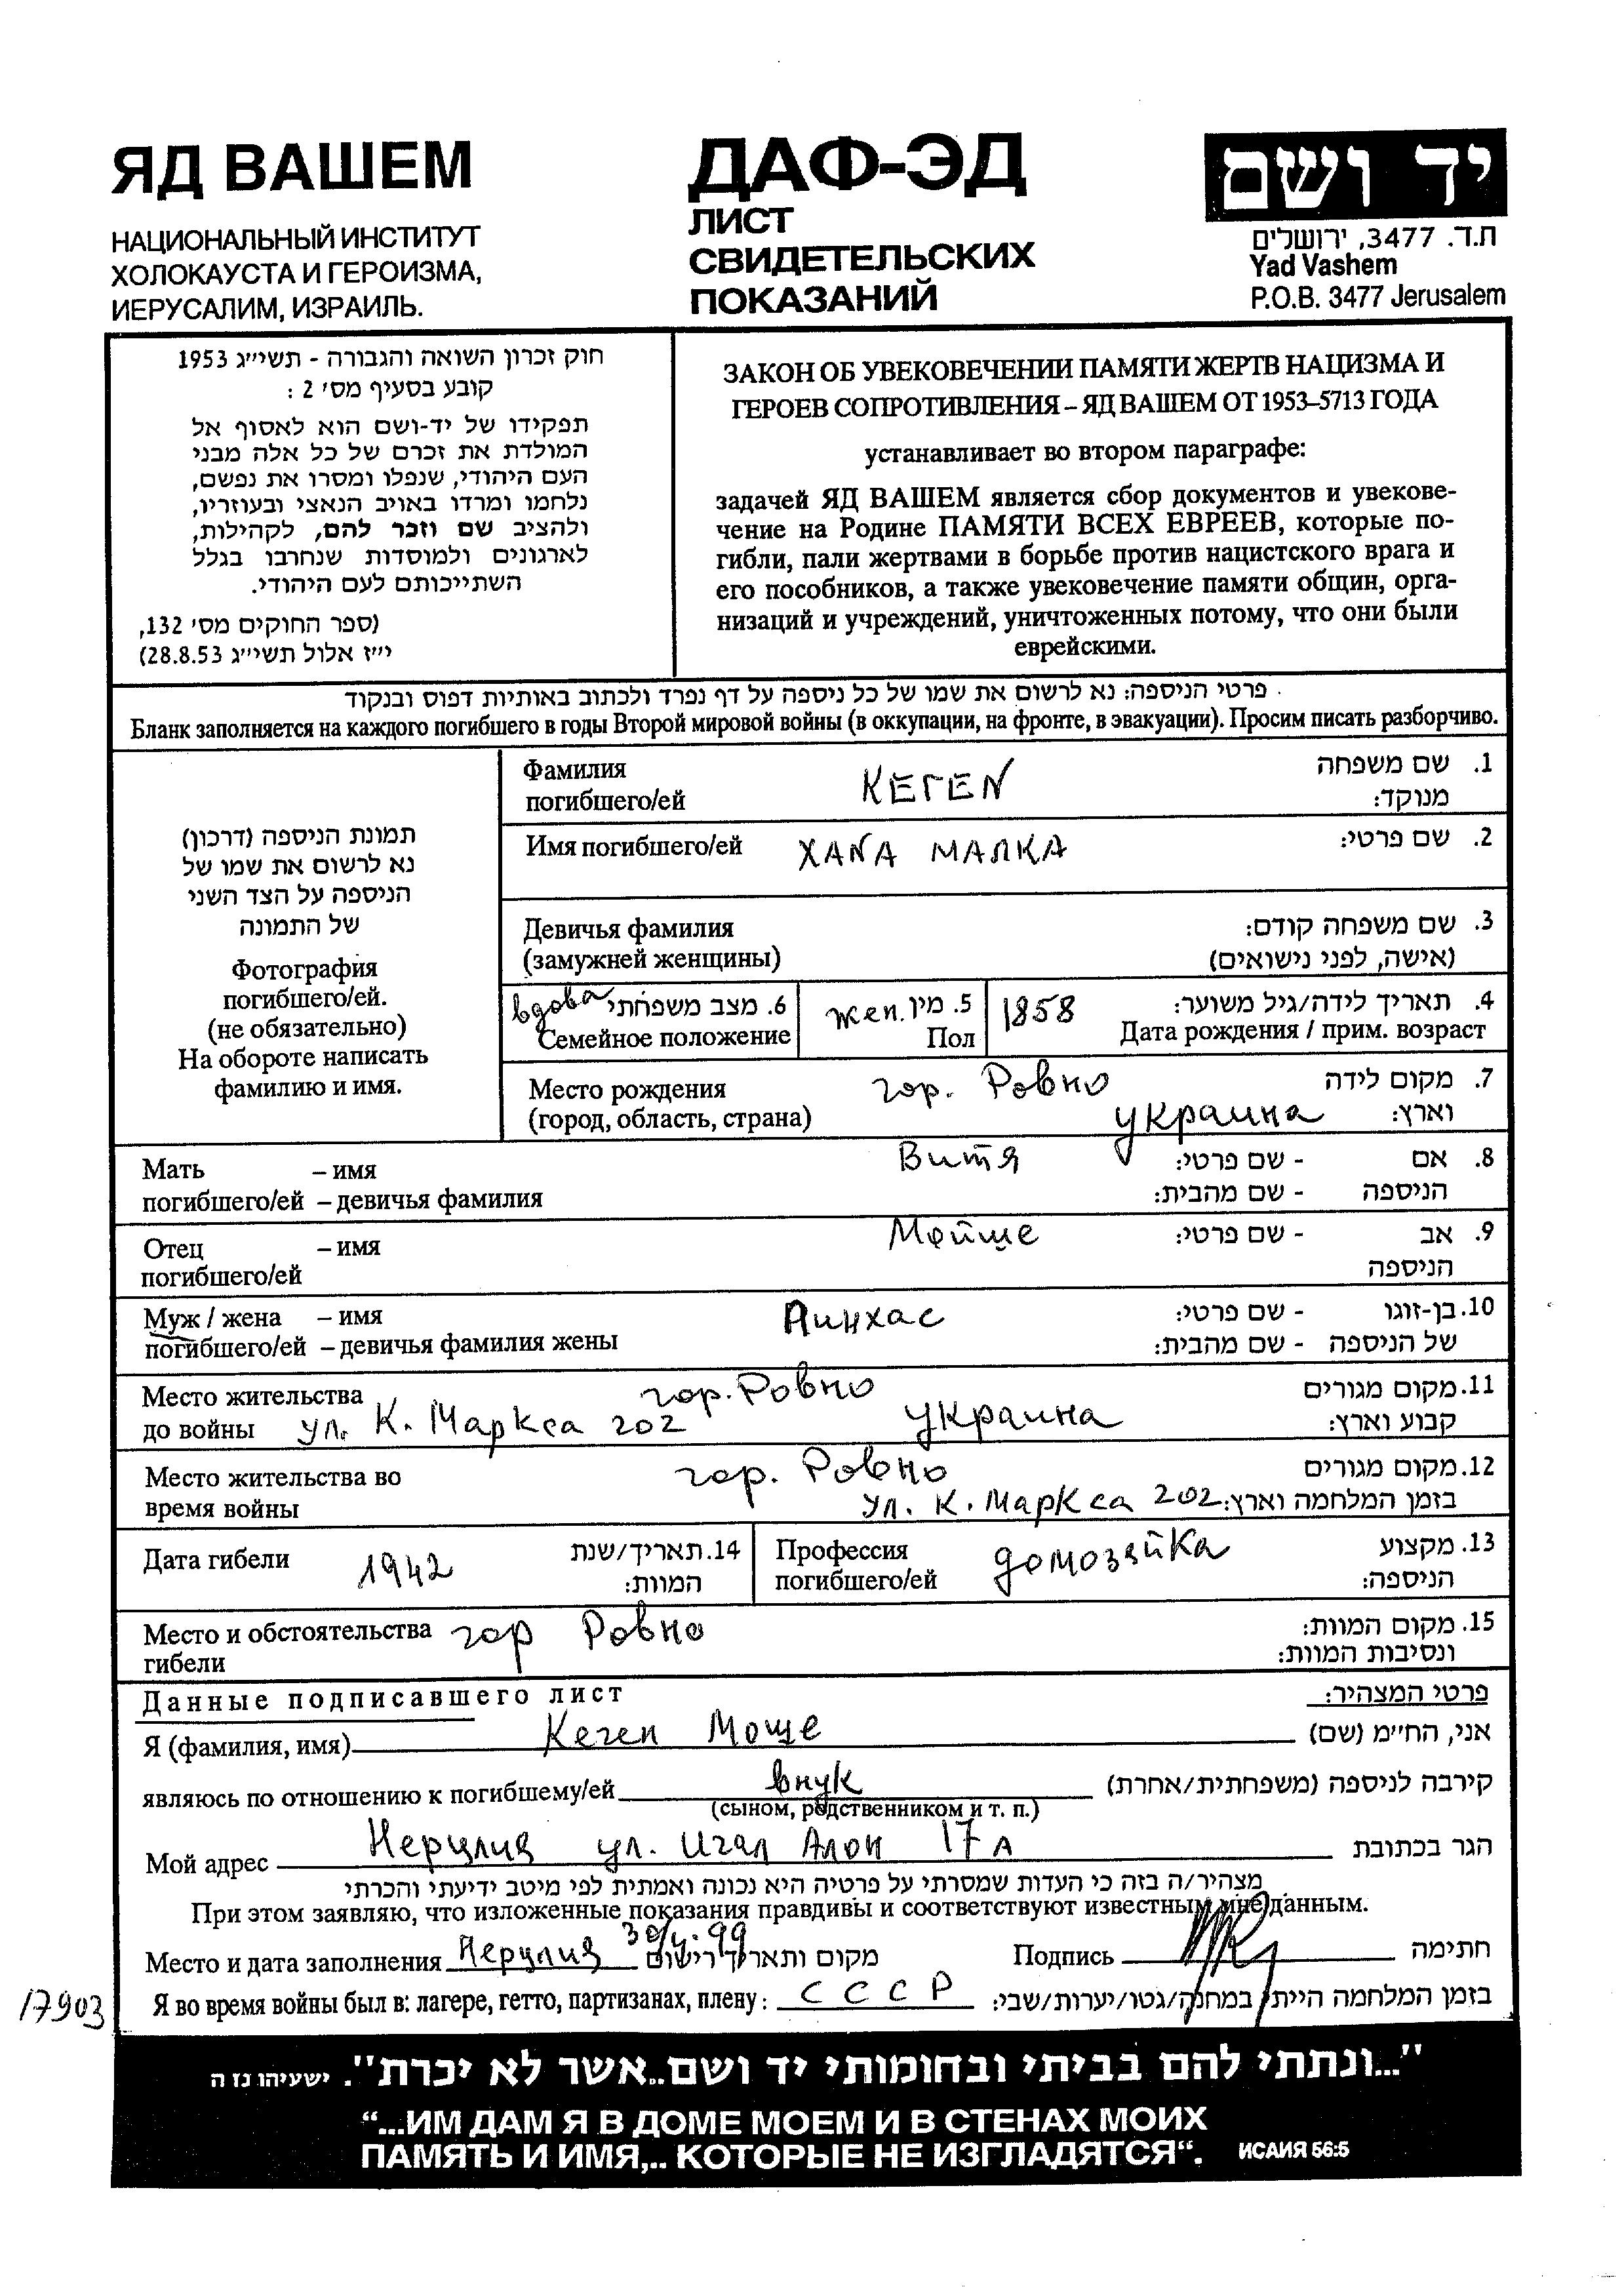 ЯД ВАШЕМ
НАЦИОНАЛЬНЫЙ ИНСТИТУТ
ХОЛОКАУСТА И ГЕРОИЗМА,
ИЕРУСАЛИМ, ИЗРАИЛЬ.
ДАФ-ЭД
ЛИСТ
СВИДЕТЕЛЬСКИХ
ПОКАЗАНИЙ
יד ושם
ת.ד. 3477, ירושלים
Yad Vashem
P.O.B. 3477 Jerusalem
חוק זכרון השואה והגבורה - תשי״ג 1953
קובע בסעיף מס׳ 2 :
תפקידו של יד-ושם הוא לאסוף אל
המולדת את זכרם של כל אלה מבני
העם היהודי, שנפלו ומסרו את נפשם,
נלחמו ומרדו באויב הנאצי ובעוזריו,
ולהציב שם וזכר להם, לקהילות,
לארגונים ולמוסדות שנחרבו בגלל
השתייכותם לעם היהודי.
(ספר החוקים מס׳ 132,
י״ז אלול תשי״ג 28.8.53)
ЗАКОН ОБ УВЕКОВЕЧЕНИИ ПАМЯТИ ЖЕРТВ НАЦИЗМА И
ГЕРОЕВ СОПРОТИВЛЕНИЯ – ЯД ВАШЕМ ОТ 1953–5713 ГОДА
устанавливает во втором параграфе:
задачей ЯД ВАШЕМ является сбор документов и увекове-
чение на Родине ПАМЯТИ ВСЕХ ЕВРЕЕВ, которые по-
гибли, пали жертвами в борьбе против нацистского врага и
его пособников, а также увековечение памяти общин, орга-
низаций и учреждений, уничтоженных потому, что они были
еврейскими.
פרטי הניספה: נא לרשום את שמו של כל ניספה על דף נפרד ולכתוב באותיות דפוס ובנקוד
Бланк заполняется на каждого погибшего в годы Второй мировой войны (в оккупации, на фронте, в эвакуации). Просим писать разборчиво.
תמונת הניספה (דרכון)
נא לרשום את שמו של
הניספה על הצד השני
של התמונה
Фотография
погибшего/ей.
(не обязательно)
На обороте написать
фамилию и имя.
Фамилия КЕГЕN 1. שם משפחה
погибшего/ей מנוקד:
Имя погибшего/ей ХАNА МАЛКА 2. שם פרטי:
Девичья фамилия 3. שם משפחה קודם:
(замужней женщины) (אישה, לפני נישואים)
вдова 6. מצב משפחתי жен. 5. מין 1858 4. תאריך לידה/גיל משוער:
Семейное положение Пол Дата рождения / прим. возраст
Место рождения гор. Ровно 7. מקום לידה
(город, область, страна) украина וארץ:
Мать – имя Витя 8. אם - שם פרטי:
погибшего/ей – девичья фамилия הניספה - שם מהבית:
Отец – имя Мойше 9. אב - שם פרטי:
погибшего/ей הניספה
Муж / жена – имя Пинхас 10. בן-זוגו - שם פרטי:
погибшего/ей – девичья фамилия жены של הניספה - שם מהבית:
Место жительства гор. Ровно 11. מקום מגורים
до войны ул. К. Маркса 202 украина קבוע וארץ:
Место жительства во гор. Ровно 12. מקום מגורים
время войны ул. К. Маркса 202 בזמן המלחמה וארץ:
Дата гибели 1942 14. תאריך/שנת המוות:
Профессия погибшего/ей домозяйка 13. מקצוע הניספה:
Место и обстоятельства гор Ровно 15. מקום המוות:
гибели ונסיבות המוות:
Данные подписавшего лист פרטי המצהיר:
Я (фамилия, имя) Кеген Моше אני, הח״מ (שם)
являюсь по отношению к погибшему/ей внук קירבה לניספה (משפחתית/אחרת)
(сыном, родственником и т. п.)
Мой адрес Нерцлия ул. Игал Алон 17 А הגר בכתובת
מצהיר/ה בזה כי העדות שמסרתי על פרטיה היא נכונה ואמתית לפי מיטב ידיעתי והכרתי
При этом заявляю, что изложенные показания правдивы и соответствуют известным мне данным.
Место и дата заполнения Нерцлия מקום ותאריך רישום Подпись חתימה
Я во время войны был в: лагере, гетто, партизанах, плену: СССР בזמן המלחמה הייתי במחנה/גטו/יערות/שבי:
17903
"...ונתתי להם בביתי ובחומותי יד ושם..אשר לא יכרת". ישעיהו נז ה
“...ИМ ДАМ Я В ДОМЕ МОЕМ И В СТЕНАХ МОИХ
ПАМЯТЬ И ИМЯ,.. КОТОРЫЕ НЕ ИЗГЛАДЯТСЯ“. ИСАИЯ 56:5